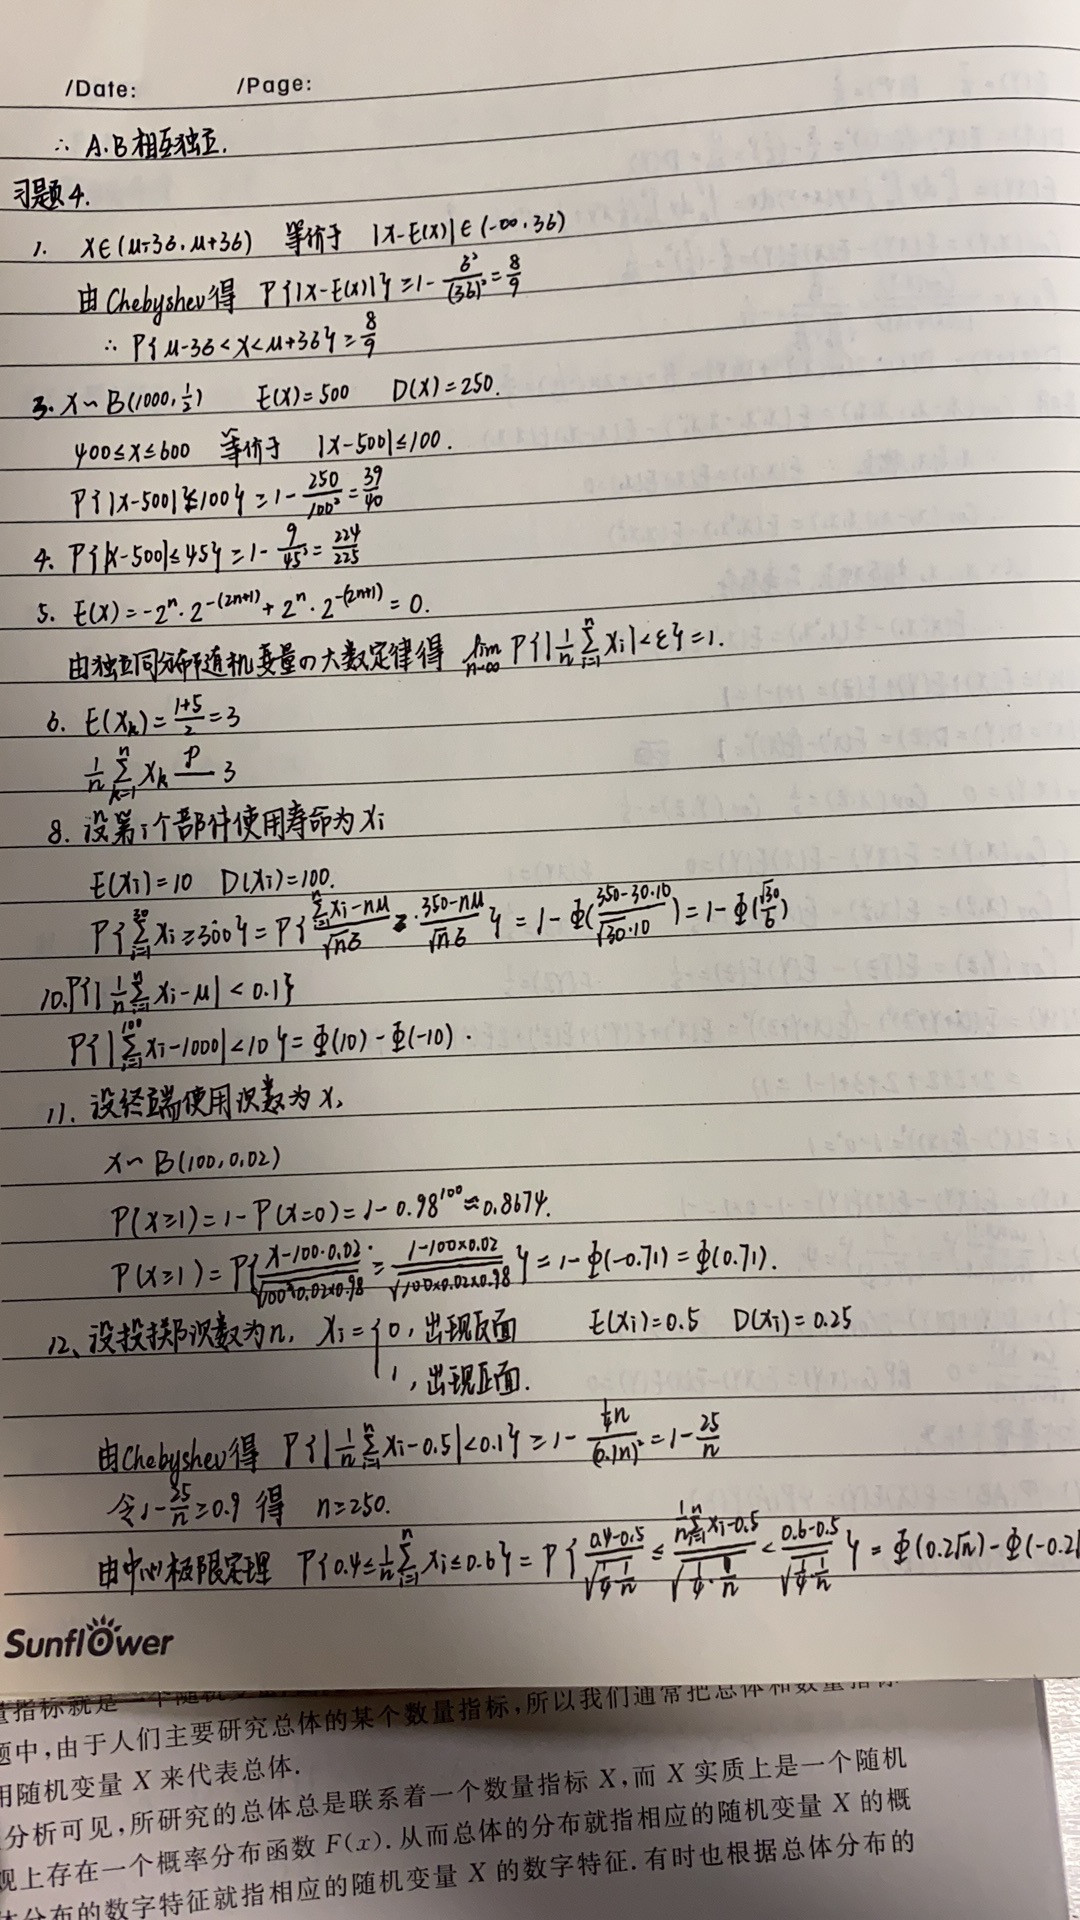 /Date: /Page:
∴ A.B相互独立.
习题4.
1. X∈(μ-3σ, μ+3σ) 等价于 |X-E(X)|∈(-∞,3σ)
由Chebyshev得 P{|X-E(X)|} ≥ 1 - σ²/(3σ)² = 8/9
∴ P{μ-3σ<X<μ+3σ} = 8/9
3. X~B(1000, 1/2) E(X)=500 D(X)=250.
400≤X≤600 等价于 |X-500|≤100.
P{|X-500|≤100} ≥ 1 - 250/100² = 39/40
4. P{|X-500|≤45} ≥ 1 - 9/45² = 224/225
5. E(X) = -2ⁿ·2^-(2n+1) + 2ⁿ·2^-(2n+1) = 0.
由独立同分布随机变量の大数定律得 lim n→∞ P{|1/n ∑ i=1 n Xi|<ε} = 1.
6. E(Xk) = 1+5/2 = 3
1/n ∑ k=1 n Xk P— 3
8. 设第i个部件使用寿命为Xi
E(Xi)=10 D(Xi)=100.
P{∑ i=1 30 Xi ≥ 300} = P{∑ i=1 n Xi-nμ/√nσ ≥ 350-nμ/√nσ} = 1-Φ(350-30·10/√30·10) = 1-Φ(√30/6)
10. P{|1/n ∑ i=1 n Xi-μ| < 0.1}
P{|∑ i=1 100 Xi-1000|<10} = Φ(10)-Φ(-10).
11. 设终端使用次数为X,
X~B(100,0.02)
P(X≥1) = 1-P(X=0) = 1-0.98¹⁰⁰ ≈ 0.8674.
P(X≥1) = P{X-100·0.02/√100×0.02×0.98 ≥ 1-100×0.02/√100×0.02×0.98} = 1-Φ(-0.71) = Φ(0.71).
12、设投掷次数为n, Xi = {0, 出现反面 E(Xi)=0.5 D(Xi)=0.25
1, 出现正面.
由Chebyshev得 P{|1/n ∑ i=1 n Xi-0.5|<0.1} ≥ 1 - ¼n/(0.1n)² = 1 - 25/n
令1-25/n ≥ 0.9 得 n≥250.
由中心极限定理 P{0.4≤1/n ∑ i=1 n Xi≤0.6} = P{0.4-0.5/√¼·1/n ≤ 1/n ∑ i=1 n Xi-0.5/√¼·1/n < 0.6-0.5/√¼·1/n} = Φ(0.2√n)-Φ(-0.2
Sunflower
量指标就是一个随机变
题中,由于人们主要研究总体的某个数量指标,所以我们通常把总体和数量指标
用随机变量 X 来代表总体.
分析可见,所研究的总体总是联系着一个数量指标 X,而 X 实质上是一个随机
观上存在一个概率分布函数 F(x).从而总体的分布就指相应的随机变量 X 的概
体分布的数字特征就指相应的随机变量 X 的数字特征.有时也根据总体分布的